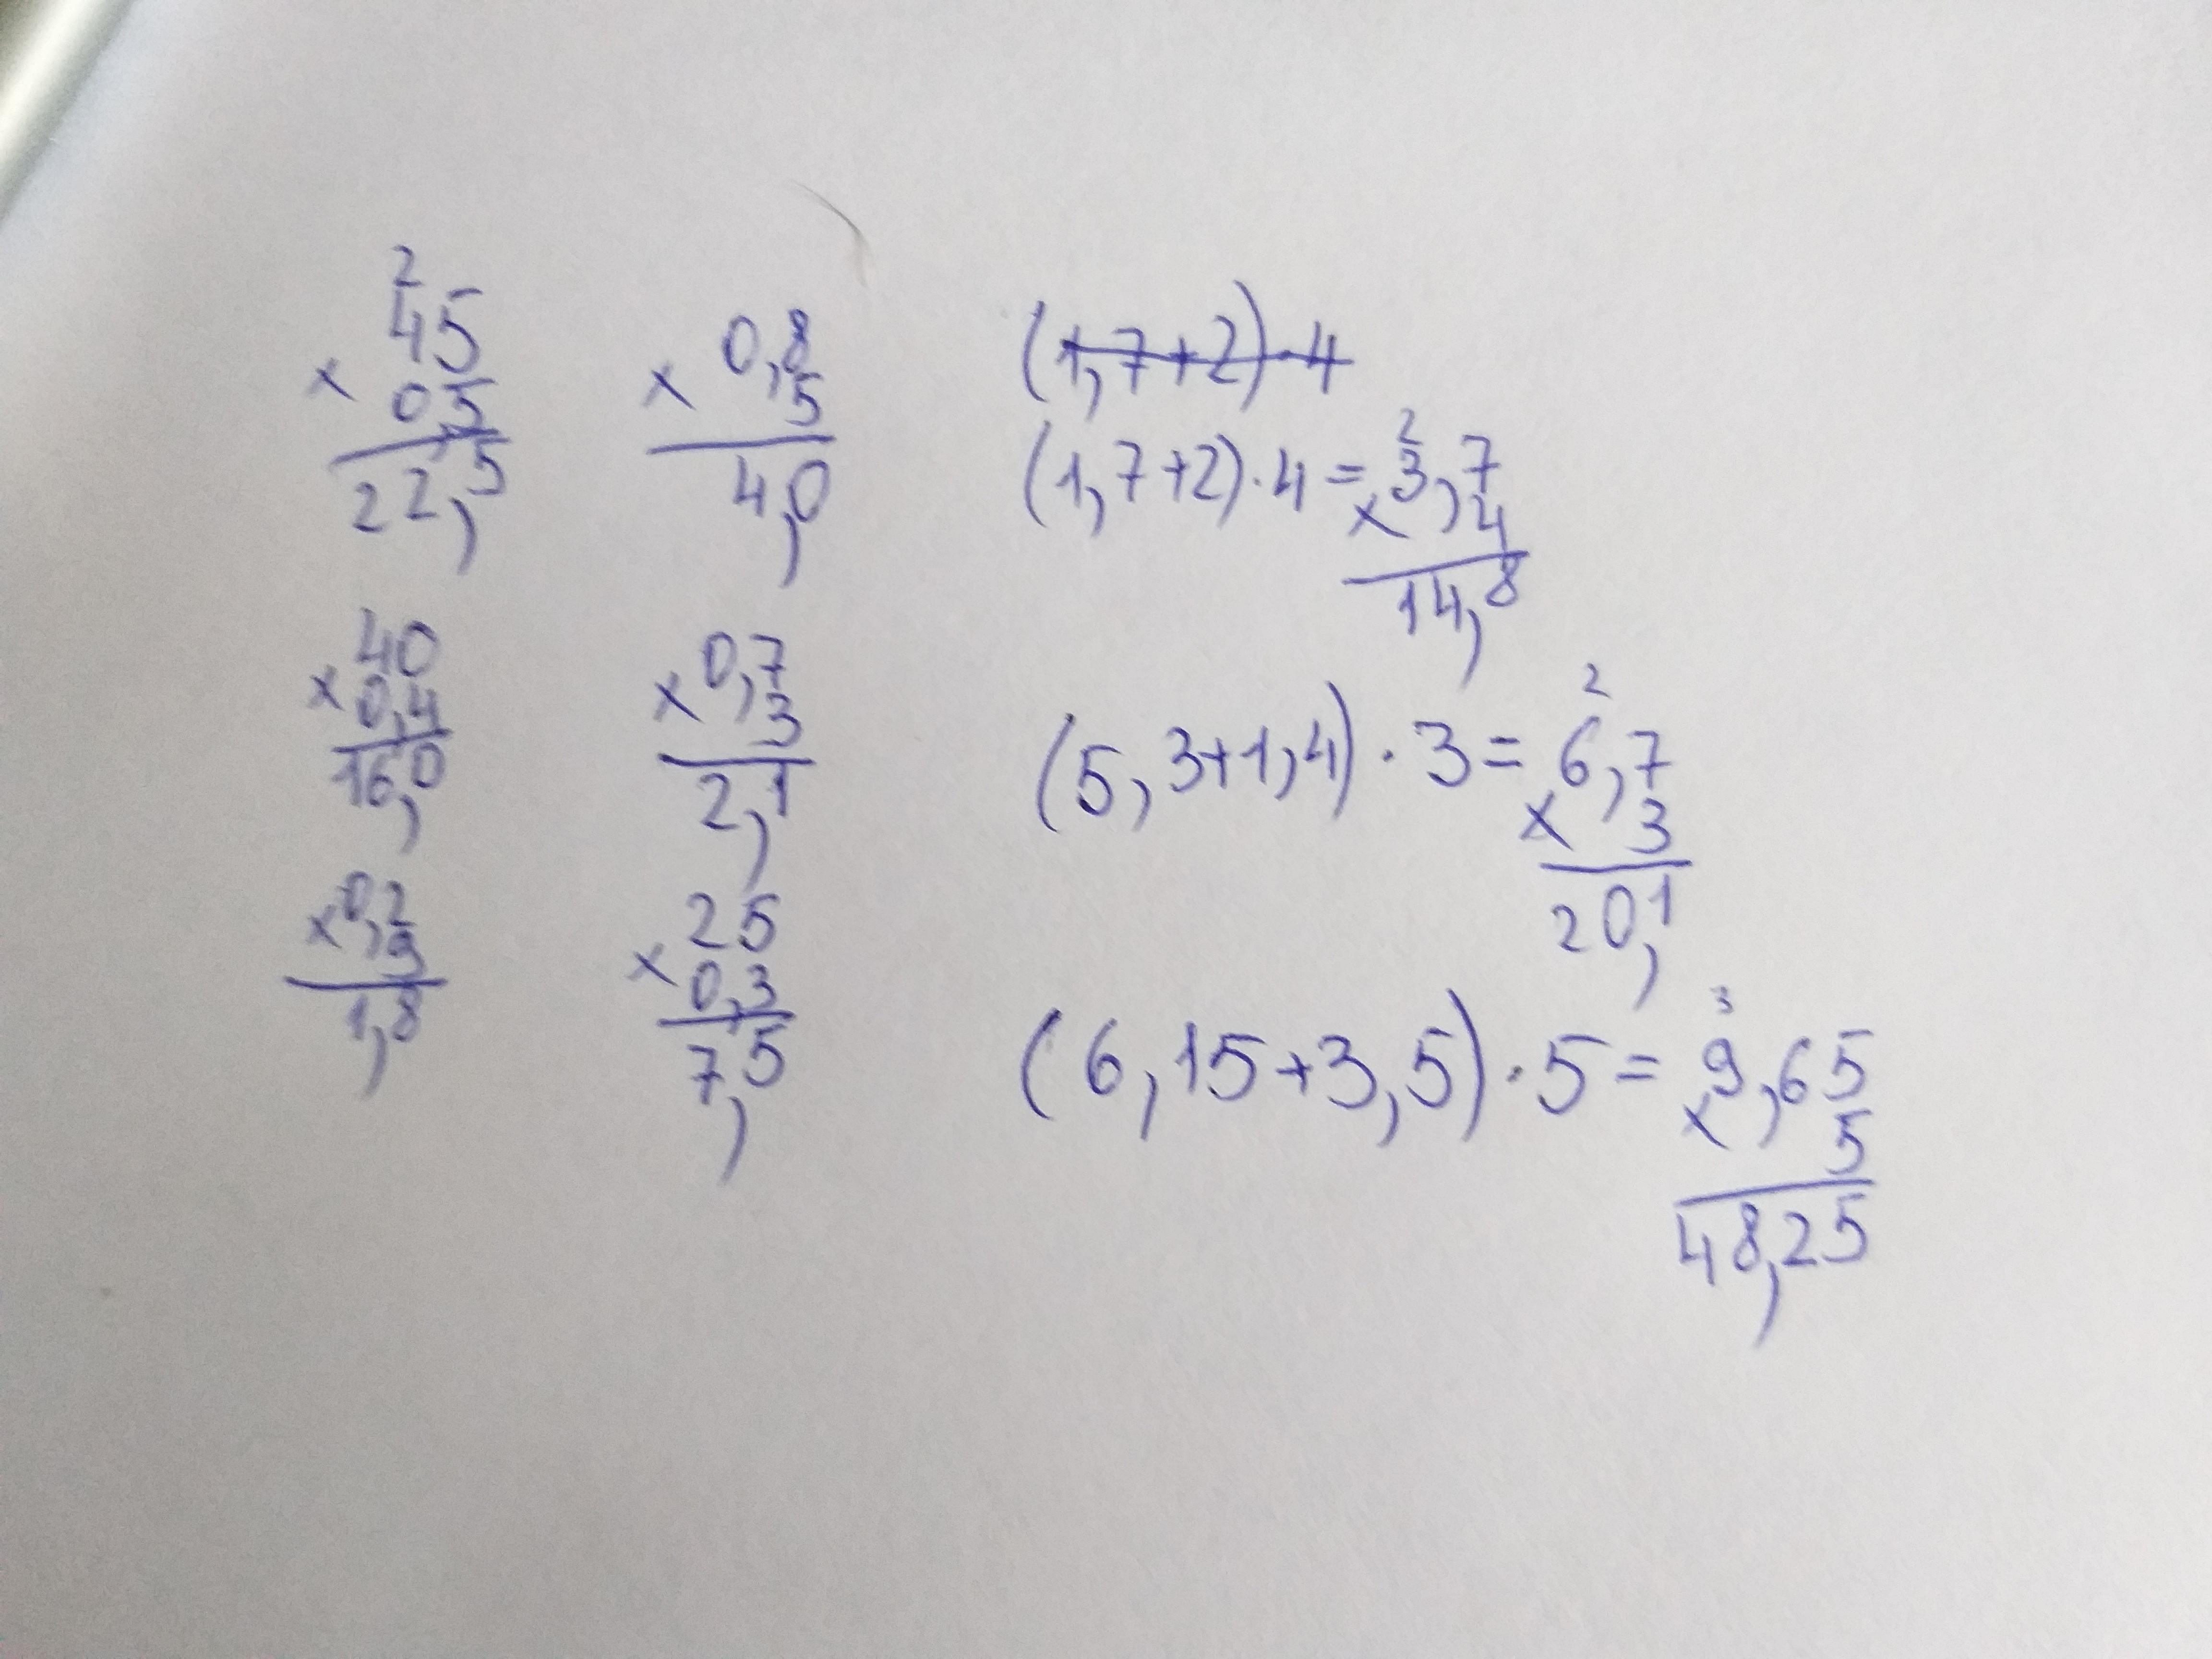 2
45
x 0,5
22,5
40
x 0,4
16,0
0,2
x 9
1,8
0,8
x 5
4,0
0,7
x 3
2,1
25
x 0,3
7,5
(1,7+2)·4
2
(1,7+2)·4=3,7
x 4
14,8
2
(5,3+1,4)·3=6,7
x 3
20,1
3
(6,15+3,5)·5=9,65
x 5
48,25